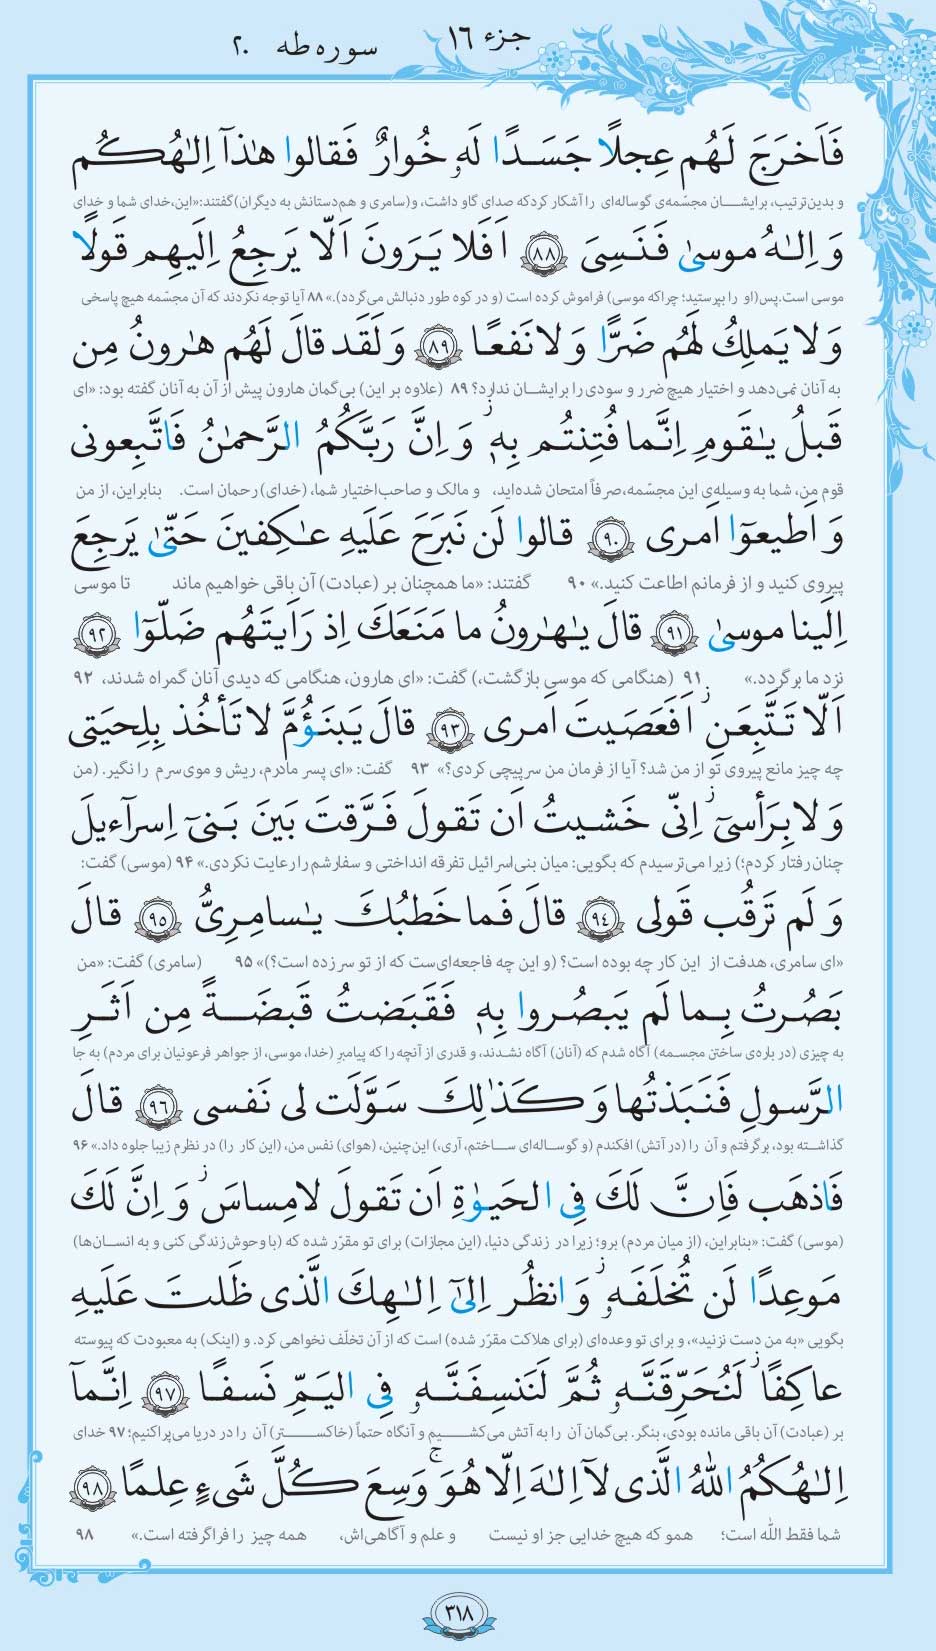 جزء ۱۶
سوره طه ۲۰
فَاَخرَجَ لَهُم عِجلًا جَسَدًا لَهٗ خُوارٌ فَقالوا هٰذآ اِلٰهُكُم
و بدین‌ترتیب، برایشان مجسّمه‌ی گوساله‌ای را آشکار کرد که صدای گاو داشت، و (سامری و هم‌دستانش به دیگران) گفتند: «این، خدای شما و خدای
وَ اِلٰهُ موسىٰ فَنَسِىَ ﴿۸۸﴾ اَفَلا يَرَونَ اَلّا يَرجِعُ اِلَيهِم قَولًا
موسی است. پس (او را بپرستید؛ چراکه موسی) فراموش کرده است (و در کوه طور دنبالش می‌گردد).» ۸۸ آیا توجه نکردند که آن مجسّمه هیچ پاسخی
وَ لا يَملِكُ لَهُم ضَرًّا وَ لا نَفعًا ﴿۸۹﴾ وَ لَقَد قالَ لَهُم هٰرونُ مِن
به آنان نمی‌دهد و اختیار هیچ ضرر و سودی را برایشان ندارد؟ ۸۹ (علاوه بر این) بی‌گمان هارون پیش از آن به آنان گفته بود: «ای
قَبلُ يٰقَومِ اِنَّما فُتِنتُم بِهٖ ز وَ اِنَّ رَبَّكُمُ الرَّحمٰنُ فَاتَّبِعونى
قوم من، شما به وسیله‌ی این مجسّمه، صرفاً امتحان شده‌اید، و مالک و صاحب‌اختیار شما، (خدای) رحمان است. بنابراین، از من
وَ اَطيعوٓا اَمرى ﴿۹۰﴾ قالوا لَن نَبرَحَ عَلَيهِ عٰكِفينَ حَتّىٰ يَرجِعَ
پیروی کنید و از فرمانم اطاعت کنید.» ۹۰ گفتند: «ما همچنان بر (عبادت) آن باقی خواهیم ماند تا موسی
اِلَينا موسىٰ ﴿۹۱﴾ قالَ يٰهٰرونُ ما مَنَعَكَ اِذ رَاَيتَهُم ضَلّوٓا ﴿۹۲﴾
نزد ما برگردد.» ۹۱ (هنگامی که موسی بازگشت،) گفت: «ای هارون، هنگامی که دیدی آنان گمراه شدند، ۹۲
اَلّا تَتَّبِعَنِ ز اَفَعَصَيتَ اَمرى ﴿۹۳﴾ قالَ يَبنَؤُمَّ لا تَأخُذ بِلِحيَتى
چه چیز مانع پیروی تو از من شد؟ آیا از فرمان من سرپیچی کردی؟» ۹۳ گفت: «ای پسر مادرم، ریش و موی سرم را نگیر. (من
وَ لا بِرَأسىٓ ز اِنّى خَشيتُ اَن تَقولَ فَرَّقتَ بَينَ بَنىٓ اِسرآءيلَ
چنان رفتار کردم؛) زیرا می‌ترسیدم که بگویی: میان بنی‌اسرائیل تفرقه انداختی و سفارشم را رعایت نکردی.» ۹۴ (موسی) گفت:
وَ لَم تَرقُب قَولى ﴿۹۴﴾ قالَ فَما خَطبُكَ يٰسامِرِىُّ ﴿۹۵﴾ قالَ
«ای سامری، هدفت از این کار چه بوده است؟ (و این چه فاجعه‌ای‌ست که از تو سر زده است؟)» ۹۵ (سامری) گفت: «من
بَصُرتُ بِما لَم يَبصُروا بِهٖ فَقَبَضتُ قَبضَةً مِن اَثَرِ
به چیزی (در باره‌ی ساختن مجسمه) آگاه شدم که (آنان) آگاه نشدند، و قدری از آنچه را که پیامبرِ (خدا، موسی، از جواهر فرعونیان برای مردم) به جا
الرَّسولِ فَنَبَذتُها وَ كَذٰلِكَ سَوَّلَت لى نَفسى ﴿۹۶﴾ قالَ
گذاشته بود، برگرفتم و آن را (در آتش) افکندم (و گوساله‌ای ساختم، آری،) این‌چنین، (هوای) نفس من، (این کار را) در نظرم زیبا جلوه داد.» ۹۶
فَاذهَب فَاِنَّ لَكَ فِى الحَيوٰةِ اَن تَقولَ لا مِساسَ ز وَ اِنَّ لَكَ
(موسی) گفت: «بنابراین، (از میان مردم) برو؛ زیرا در زندگی دنیا، (این مجازات) برای تو مقرّر شده که (با وحوش زندگی کنی و به انسان‌ها)
مَوعِدًا لَن تُخلَفَهٗ ز وَ انظُر اِلىٰٓ اِلٰهِكَ الَّذى ظَلتَ عَلَيهِ
بگویی «به من دست نزنید»، و برای تو وعده‌ای (برای هلاکت مقرّر شده) است که از آن تخلّف نخواهی کرد. و (اینک) به معبودت که پیوسته
عاكِفًا ز لَنُحَرِّقَنَّهٗ ثُمَّ لَنَنسِفَنَّهٗ فِى اليَمِّ نَسفًا ﴿۹۷﴾ اِنَّمآ
بر (عبادت) آن باقی مانده بودی، بنگر. بی‌گمان آن را به آتش می‌کشیم و آنگاه حتماً (خاکستر) آن را در دریا می‌پراکنیم؛ ۹۷ خدای
اِلٰهُكُمُ اللهُ الَّذى لآ اِلٰهَ اِلّا هُوَ ج وَسِعَ كُلَّ شَىءٍ عِلمًا ﴿۹۸﴾
شما فقط اللّه است؛ همو که هیچ خدایی جز او نیست و علم و آگاهی‌اش، همه چیز را فراگرفته است.» ۹۸
۳۱۸